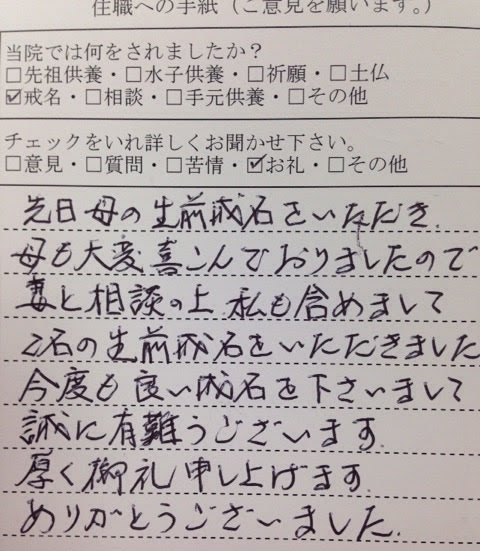 住職への手紙（ご意見を願います。）
当院では何をされましたか？
□先祖供養・□水子供養・□祈願・□土仏
☑戒名・□相談・□手元供養・□その他
チェックをいれ詳しくお聞かせ下さい。
□意見・□質問・□苦情・☑お礼・□その他
先日母の生前戒名をいただき、
母も大変喜こんでおりましたので
妻と相談の上 私も含めまして
2名の生前戒名をいただきました
今度も良い戒名を下さいまして
誠に有難うございます。
厚く御礼申し上げます。
ありがとうございました。